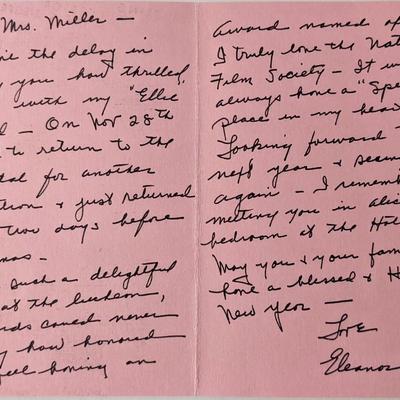 Mrs. Miller —
the delay in
you how thrilled
with my "Ellie
— On Nov 28th
to return to the
for another
& just returned
two days before
such a delightful
at the luncheon,
never
how honored
feel having an
award named
I truly love the Nat
Film Society — It w
always have a "Spe
place in my hea
Looking forward
next year & seein
again — I rememb
meeting you in alic
bedroom at the Hol
May you & your fam
have a blessed & H
New Year —
Love
Eleanor